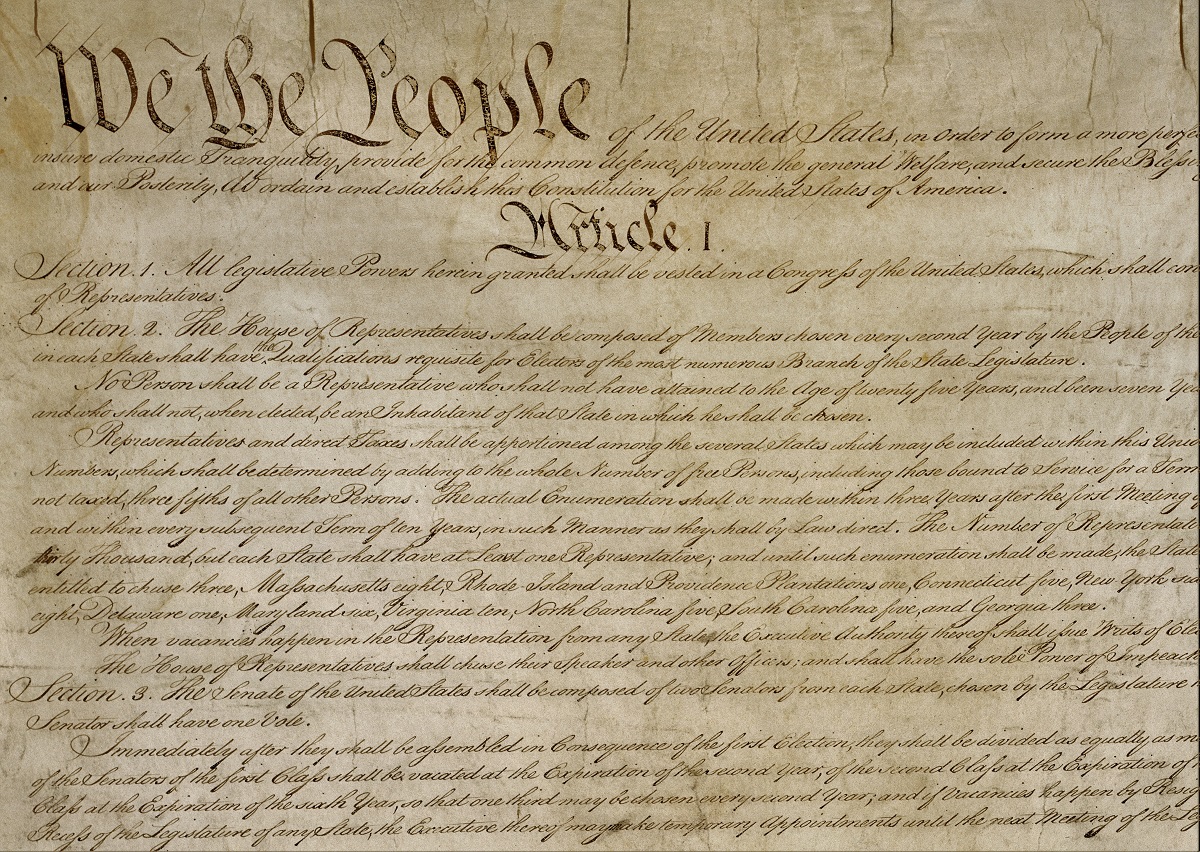 We the People of the United States, in Order to form a more perfe
insure domestic Tranquility, provide for the common defence, promote the general Welfare, and secure the Bless
and our Posterity, do ordain and establish this Constitution for the United States of America.
Article. I.
Section. 1. All legislative Powers herein granted shall be vested in a Congress of the United States, which shall con
of Representatives.
Section. 2. The House of Representatives shall be composed of Members chosen every second Year by the People of the
in each State shall have the Qualifications requisite for Electors of the most numerous Branch of the State Legislature.
No Person shall be a Representative who shall not have attained to the Age of twenty five Years, and been seven Ye
and who shall not, when elected, be an Inhabitant of that State in which he shall be chosen.
Representatives and direct Taxes shall be apportioned among the several States which may be included within this Unio
Numbers, which shall be determined by adding to the whole Number of free Persons, including those bound to Service for a Term
not taxed, three fifths of all other Persons. The actual Enumeration shall be made within three Years after the first Meeting
and within every subsequent Term of ten Years, in such Manner as they shall by Law direct. The Number of Representati
thirty Thousand, but each State shall have at Least one Representative; and until such enumeration shall be made, the State
entitled to chuse three, Massachusetts eight, Rhode-Island and Providence Plantations one, Connecticut five, New-York six
eight, Delaware one, Maryland six, Virginia ten, North Carolina five, South Carolina five, and Georgia three.
When vacancies happen in the Representation from any State, the Executive Authority thereof shall issue Writs of Elec
The House of Representatives shall chuse their Speaker and other Officers; and shall have the sole Power of Impeach
Section. 3. The Senate of the United States shall be composed of two Senators from each State, chosen by the Legislature
Senator shall have one Vote.
Immediately after they shall be assembled in Consequence of the first Election, they shall be divided as equally as m
of the Senators of the first Class shall be vacated at the Expiration of the second Year, of the second Class at the Expiration of
Class at the Expiration of the sixth Year, so that one third may be chosen every second Year; and if Vacancies happen by Resig
Recess of the Legislature of any State, the Executive thereof may make temporary Appointments until the next Meeting of the Leg